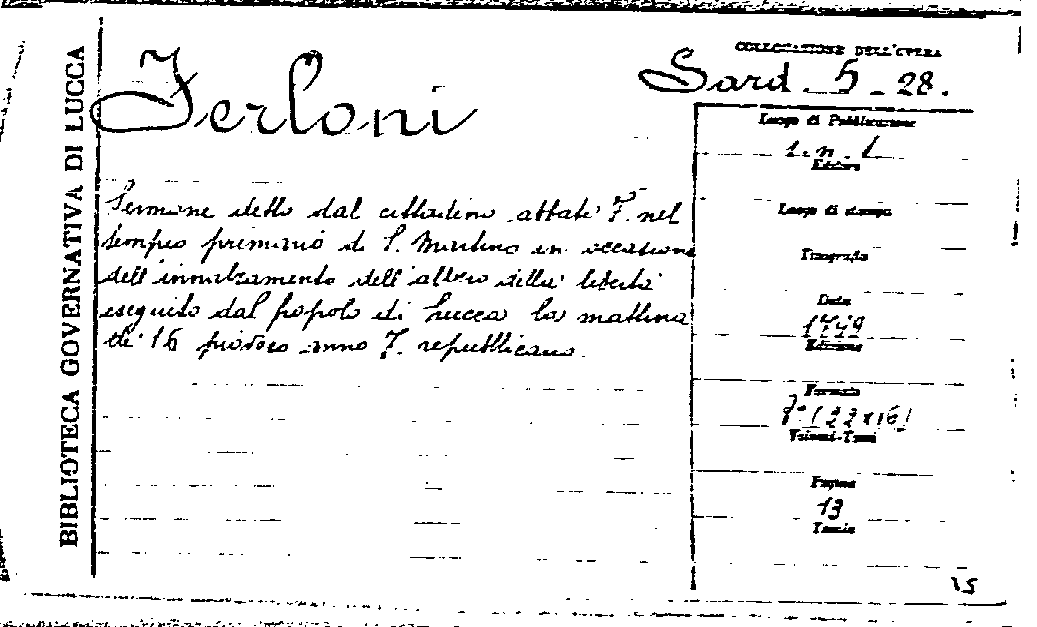 BIBLIOTECA GOVERNATIVA DI LUCCA
Ferloni
COLLOCAZIONE DELL'OPERA
Sard. 5 - 28.
Sermone detto dal cittadino abbate F. nel
tempio primario di S. Martino in occasione
dell'innalzamento dell'albero della libertà
eseguito dal popolo di Lucca la mattina
di 16 piovoso anno 7. repubblicano.
Luogo di Pubblicazione
s. n. l
Editore
Luogo di stampa
Tipografia
Data
Edizione
Formato
(22x16)
Volumi-Tomi
Pagine
13
Tavole
15